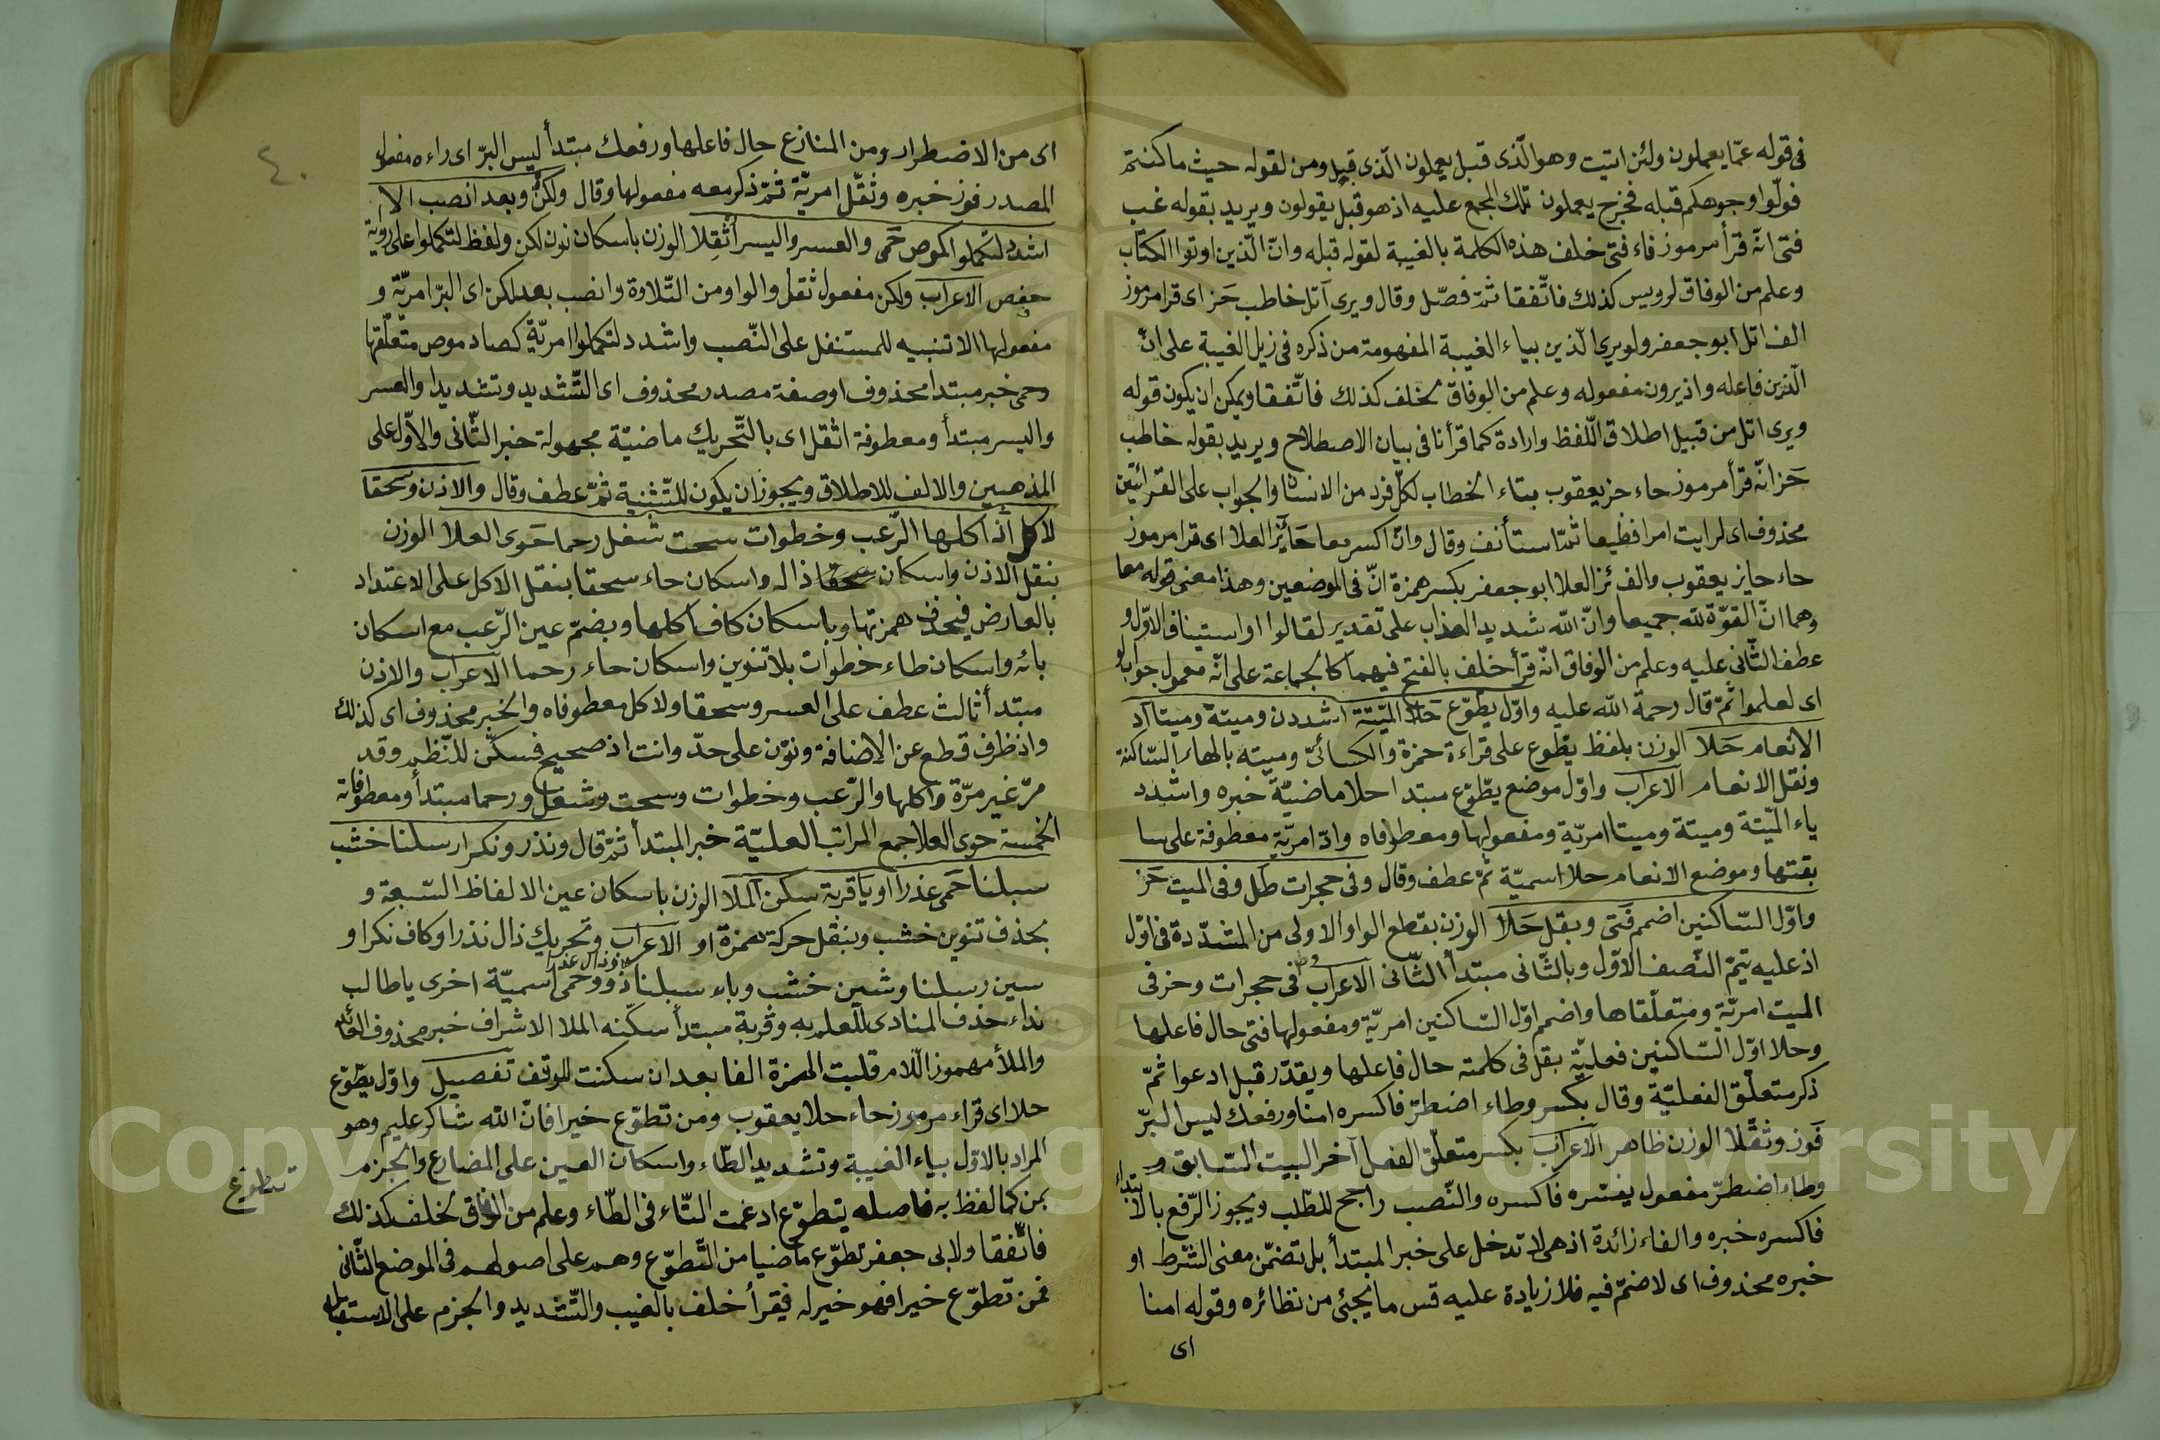 فى قوله عمّا يعملون ولئن اتيت وهو الّذى قبل يعملون الّذى قبل ومن لقوله حيث ما كنتم
فولّوا وجوهكم قبله فخرج يعملون تلك المجمع عليه اذ هو قبل يقولون ويريد بقوله غب
فتى انّه قرأ مرموز فاء فتى خلف هذه الكلمة بالغيبة لقوله قبله وانّ الّذين اوتوا الكتاب
وعلم من الوفاق لرويس كذلك فاتّفقا ثمّ فصّل وقال ويرى اتل خاطب حَز اى قرا مرموز
الف اتل ابو جعفر ولو يرى الّذين بياء الغيبة المفهومة من ذكره فى زيل الغيبة على انّ
الّذين فاعله واذ يرون مفعوله وعلم من الوفاق لخلف كذلك فاتّفقا ويمكن ان يكون قوله
ويرى اتل من قبيل اطلاق اللّفظ وارادة كما قرأنا فى بيان الاصطلاح ويريد بقوله خاطب
حَز انّه قرأ مرموز حاء حز يعقوب بتاء الخطاب لكلّ فرد من الانسان والجواب على القرائتين
محذوف اى لرايت امرا فظيعا ثمّ استأنف وقال وانّ اكسر معا حَائِز العلا اى قرا مرموز
حاء حايز يعقوب والف ئز العلا ابو جعفر بكسر همزة انّ فى الموضعين وهذا معنى قوله معا
وهما انّ القوّة لله جميعا وانّ الله شديد العذاب على تقدير لقالوا او استينافا الاوّل و
عطف الثّانى عليه وعلم من الوفاق انّه قرأ خلف بالفتح فيهما كالجماعة على انّه معمول جواب لو
اى لعلموا ثمّ قال رحمة الله عليه واوّل يطّوّع حَلا الميّتة اشددن وميتة وميتا اد
الانعام حَللا الوزن بلفظ يطّوع على قراءة حمزة والكسائىّ وميته بالهاء السّاكنة
ونقل الانعام الاعراب واوّل موضع يطّوّع مبتدا حلا ماضيّة خبره واشدد
ياء الميّتة وميتة وميتا امريّة ومفعولها ومعطوفاه وادّ امريّة معطوفة على سا
بقتها وموضع الانعام حلا اسميّة ثمّ عطف وقال وفى حجرات طل وفى الميت حَز
واوّل السّاكنين اضمم فَتى وبقل حَلا الوزن بقطع الواو الاولى من المشدّدة فى اوّل
اذ عليه يتمّ النّصف الاوّل وبالثّانى مبتدأ الثّانى الاعراب فى حجرات وحز فى
الميت امريّة ومتعلّقاها واضمم اوّل السّاكنين امريّة ومفعولها فتى حال فاعلها
وحلا اوّل السّاكنين فعليّة بقل فى كلمته حال فاعلها ويقدّر قبل ادعوا ثمّ
ذكر متعلّق الفعليّة وقال بكسر وطاء اضطرّ فاكسره امنا ورفعك ليس البرّ
فَوز وثقّلا الوزن ظاهر الاعراب بكسر متعلّق الفعل آخر البيت السّابق و
وطاء اضطرّ مفعول يفسّره فاكسره والنّصب راجح للطّلب ويجوز الرّفع بالابتداء
فاكسره خبره والفاء زائدة اذ هى لا تدخل على خبر المبتدأ بل تضمّن معنى الشّرط او
خبره محذوف اى لا ضمّ فيه فلا زيادة عليه قس ما يجئ من نظائره وقوله امنا
اى
اى من الاضطرار ومن المنازع حال فاعلها ورفعك مبتدأ ليس البرّ اى راءه مفعول
المصدر فوز خبره وثقّل امريّة ثمّ ذكر معه مفعولها وقال ولكن وبعد انصب الا
اشدد لتكملوا كموص حَمى والعسر واليسر أثقِلا الوزن باسكان نون لكن ولفظ لتكملوا على رواية
حفص الاعراب ولكن مفعول ثقل والواو من التّلاوة وانصب بعد لكن اى البرّ امريّة و
مفعولها الا تنبيه للمستفل على النّصب واشدد لتكملوا امريّة كصاد موص متعلّقها
وحمى خبر مبتدا محذوف او صفة مصدر محذوف اى التّشديد وتشديدا والعسر
واليسر مبتدأ ومعطوفة اثقل اى بالتّحريك ماضيّة مجهولة خبر الثّانى والاوّل على
المذهبين والالف للاطلاق ويجوز ان يكون للتّثنية ثمّ عطف وقال والاذن وسحقا
لاكل اذ اكلها الرّعب وخطوات سحت شغل رحما حَوى العلا الوزن
بنقل الاذن واسكان ذاله واسكان حاء سحقا بنقل الاكل على الاعتداد
بالعارض فيحذف همزتها وباسكان كاف اكلها وبضمّ عين الرّعب مع اسكان
بائه واسكان طاء خطوات بلا تنوين واسكان حاء رحما الاعراب والاذن
مبتدأ ثالث عطف على العسر وسحقا ولاكل معطوفاه والخبر محذوف اى كذلك
واذ ظرف قطع عن الاضافة ونوّن على حدّ وانت اذ صحيح فسكّن للنّظم وقد
مرّ غير مرّة واكلها والرّعب وخطوات وسحت وشغل ورحما مبتدأ ومعطوفاته
الخمسة حوى العلا جمع المراتب العليّة خبر المبتدأ ثمّ قال ونذر ونكرا رسلنا خشب
سبلنا حَمى عذرا او يا قربة سكن الملا الوزن باسكان عين الالفاظ السّبعة و
بحذف تنوين خشب وبنقل حركة همزة او الاعراب وتحريك ذال نذرا وكاف نكرا و
سين رسلنا وشين خشب وباء سبلنا وذال عذرا ذو وحمى اسميّة اخرى يا طالب
نداء حذف المنادى للعلم به وقربة مبتدأ سكّنه الملا الاشراف خبر محذوف الفائد
والملأ مهموز اللّام قلبت الهمزة الفا بعد ان سكنت للوقف تفصيل واوّل يطّوّع
حلا اى قراء مرموز حاء حلا يعقوب ومن تطوّع خيرا فانّ الله شاكر عليم وهو
المراد بالاوّل بياء الغيبة وتشديد الطّاء واسكان العين على المضارع والجزم
بمن كما لفظ به فاصله يتطوّع ادغمت التّاء فى الطّاء وعلم من الوفاق لخلف كذلك
فاتّفقا ولابى جعفر تطوّع ماضيا من التّطوّع وهم على اصولهم فى الموضع الثّانى
فمن تطوّع خيرا فهو خير له فيقرأ خلف بالغيب والتّشديد والجزم على الاستقبال
تطوع
٤٠
Copyright © King Saud University